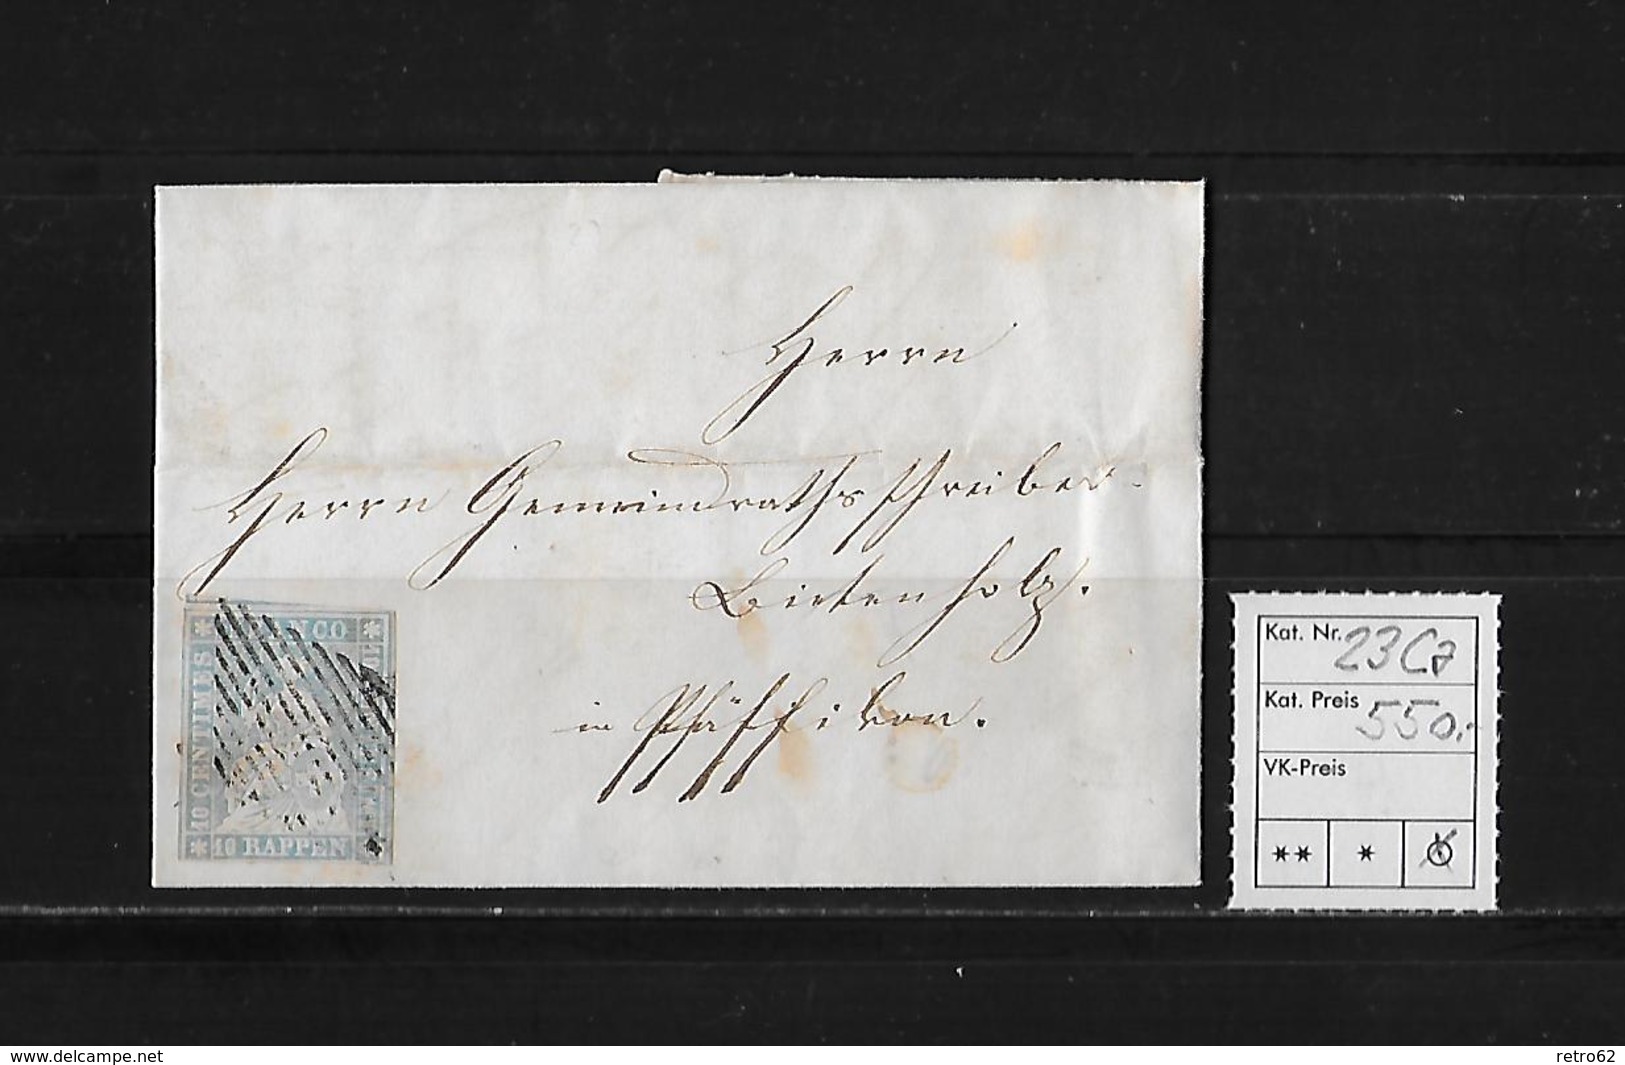 Herrn
Herrn Gemeindrathsschreiber
Bietenholz.
in Pfäffikon.
FRANCO
10 CENTIMES
10 RAPPEN
Kat. Nr. 23Ca
Kat. Preis 550.-
VK-Preis
** * ⊙
www.delcampe.net
retro62